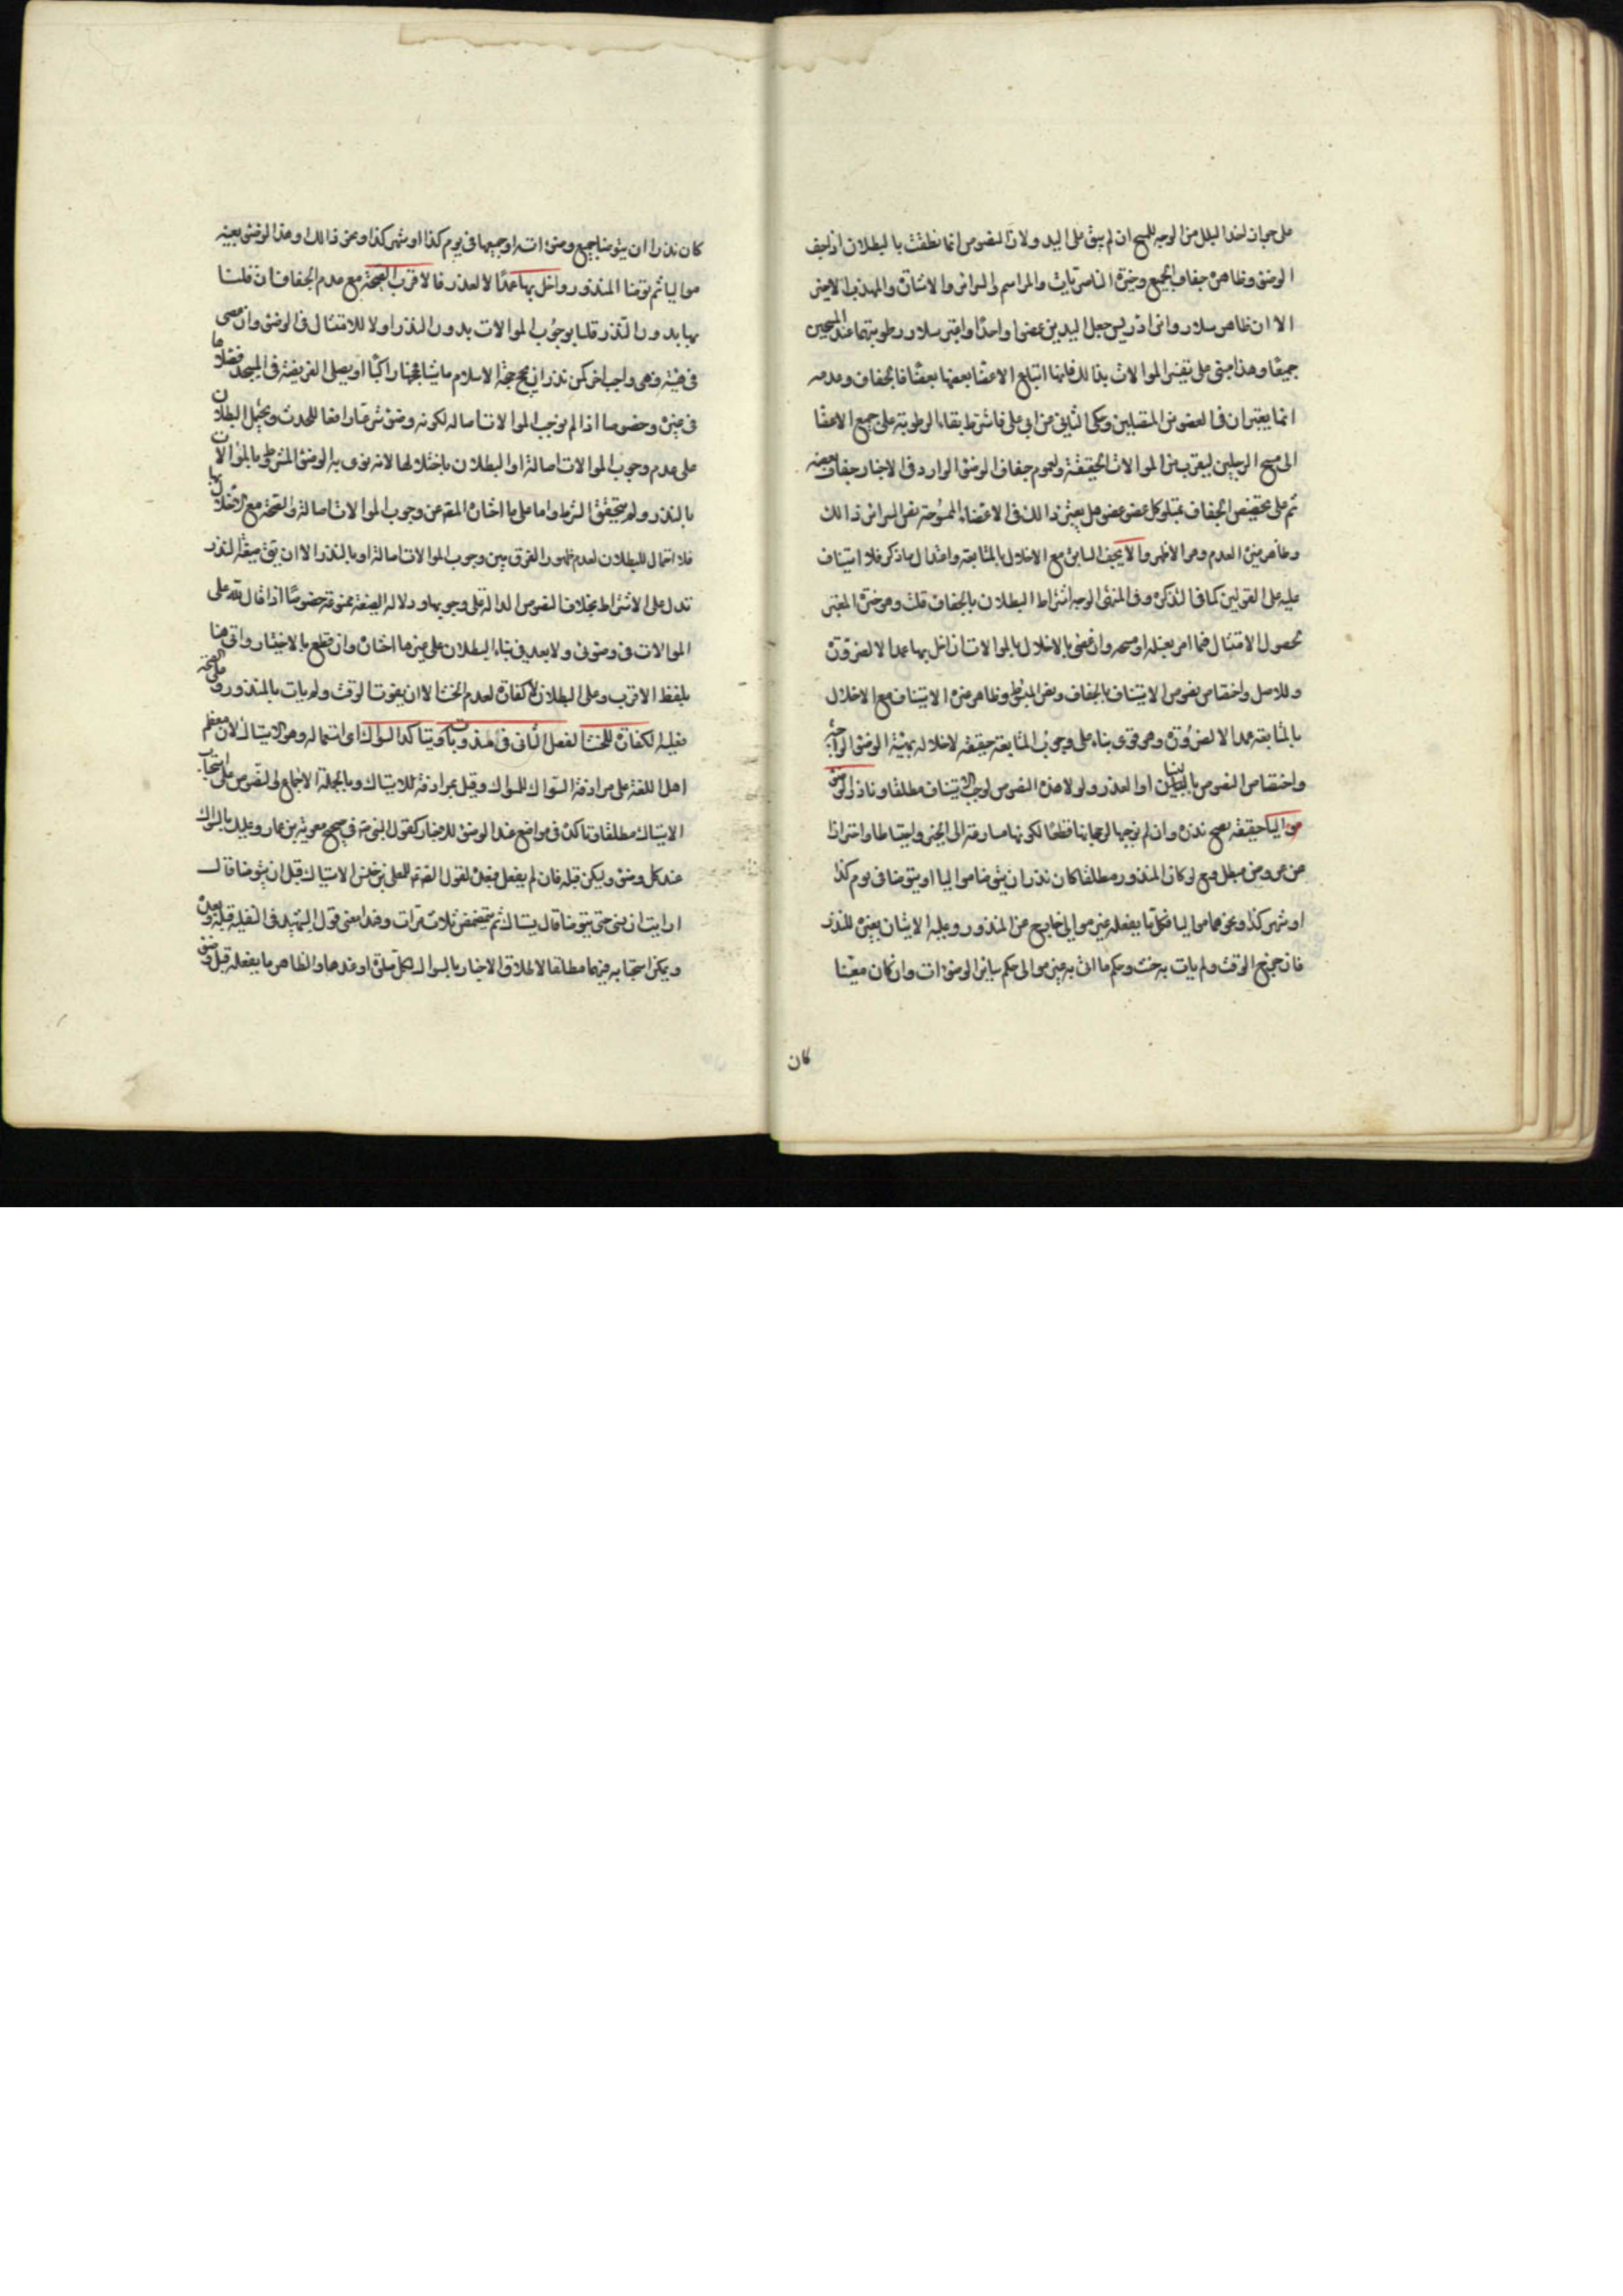 على جواز اخذ البلل من الوجه للمسح ان لم يبق على اليد ولان النصوص انما نطقت بالبطلان اذا جف
الوضوء وظاهره جفاف الجميع وخيرة الناصريات والمراسم والسرائر والاشارة والمهذب الاجتزاء
الا ان ظاهر سلار وابن ادريس جعل اليدين عضوا واحدا واعتبر سلار رطوبتهما عند المسحين
جميعا وهذا مبني على تفسير الموالاة بذلك فانها اتباع الاعضا بعضها بعضا فالجفاف وعدمه
انما يعتبران في العضوين المتصلين وحكى الثاني عن ابي على فاشترط بقاء الرطوبة على جميع الاعضا
الى مسح الرجلين ليقرب من الموالاة الحقيقة ولعموم جفاف الوضوء الوارد في الاخبار جفاف بعضه
ثم على تخصيص الجفاف بمتلو كل عضو عضو هل يعتبر ذلك في الاعضاء الممسوحة نص السرائر ذلك
وظاهر غيره العدم وهو الاظهر والا يجف السابق مع الاخلال بالمتابعة واعتدال ما ذكر فلا استيناف
عليه على القولين كما في التذكرة وفي المنتهى الوجه اشتراط البطلان بالجفاف قلت وهو خيرة المعتبر
لحصول الامتثال فيما امر بغسله او مسحه وان عصى بالاخلال بالموالات ان اخل بها عمدا لا لضرورة
وللاصل واختصاص نصوص الاستيناف بالجفاف ونص المبسوط وظاهر غيره الاستيناف مع الاخلال
بالمتابعة عمدا لا لضرورة وهو قوى بناء على وجوب المتابعة حقيقة لاخلاله بهيئة الوضوء الواجبة
واختصاص النصوص بالنسيان او العذر ولولا هذه النصوص لوجب الاستيناف مطلقا وناذر الوضوء
مواليا حقيقة يصح نذره وان لم نوجبها لرجحانها قطعا لكونها مسارعة الى الخير واحتياطا واحترازا
عن عروض مبطل فمع لو كان المنذور مطلقا كان نذر ان يتوضا مواليا او يتوضا في يوم كذا
او شهر كذا ونحوهما مواليا فكل ما يفعله غير موالي خارج عن المنذور وعليه الاتيان بغيره للنذر
فان خرج الوقت ولم يات به حنث وحكم ما اتى به غير موالى حكم ساير الوضوءات وان كان معينا
كان
كان نذر ان يتوضا جميع وضوءاته او جميعها في يوم كذا او شهر كذا ونحو ذلك وهذا الوضوء بعينه
مواليا ثم توضا المنذور واخل بها عمدا لا لعذر فالاقرب الصحة مع عدم الجفاف ان قلنا
بها بدون النذر قلنا بوجوب الموالات بدون النذر اولا للامتثال في الوضوء وان عصى
في هيئته وهي واجب اخر كمن نذر ان يحج حجة الاسلام ماشيا فحجها راكبا او يصلى الفريضة في المسجد فصلاها
في غيره وخصوصا اذا لم نوجب الموالات اصالة لكونه وضوء شرعيا رافعا للحدث ويحتمل البطلان
على عدم وجوب الموالات اصالة او البطلان باختلالها لانه نوى به الوضوء المشروط بالموالات
بالنذر ولم يتحقق الشرط واما على ما اختاره المصنف من وجوب الموالات اصالة والصحة مع الاخلال بها
فلا احتمال للبطلان لعدم ظهور الفرق بين وجوب الموالات اصالة او بالنذر الا ان يق صيغة النذر
تدل على الاشتراط بخلاف النصوص الدالة على وجوبها ودلالة الصيغة ممنوعة خصوصا اذا قال لله على
الموالات في وضوئى ولا بعد في بناء البطلان على غير ما اختاره وان قطع بالاختيار واتى هنا
بلفظ الاقرب وعلى البطلان لا كفارة لعدم الحنث الا ان يفوت الوقت ولم يات بالمنذور وعلى الصحة
فعليه الكفارة للحنث الفصل الثانى في مندوباته ويتاكد السواك اى استعماله وهو الاستياك لان معظم
اهل اللغة على مرادفة السواك للمسواك وقيل بمرادفة للاستياك وبالجملة الاجماع والنصوص على استحباب
الاستياك مطلقا وتاكده في مواضع عند الوضوء للاخبار كقول النبى ص في صحيح معوية بن عمار وعليك بالسواك
عند كل وضوء وليكن قبله فان لم يفعل فبعده لقول الصادق للمعلى بن خنيس الاستياك قبل ان يتوضا قال
ارايت ان نسى حتى يتوضا قال يستاك ثم يتمضمض ثلاث مرات وهذا معنى قول الشهيد في النفلية قبله وبعده
ويمكن استحبابه فيهما مطلقا لاطلاق الاخبار بالسواك لكل صلوة او عندها والظاهر ما يفعله قبل وضوء